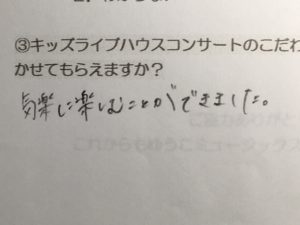 ③キッズライブハウスコンサートのこだわ
かせてもらえますか？
気楽に楽しむことができました。